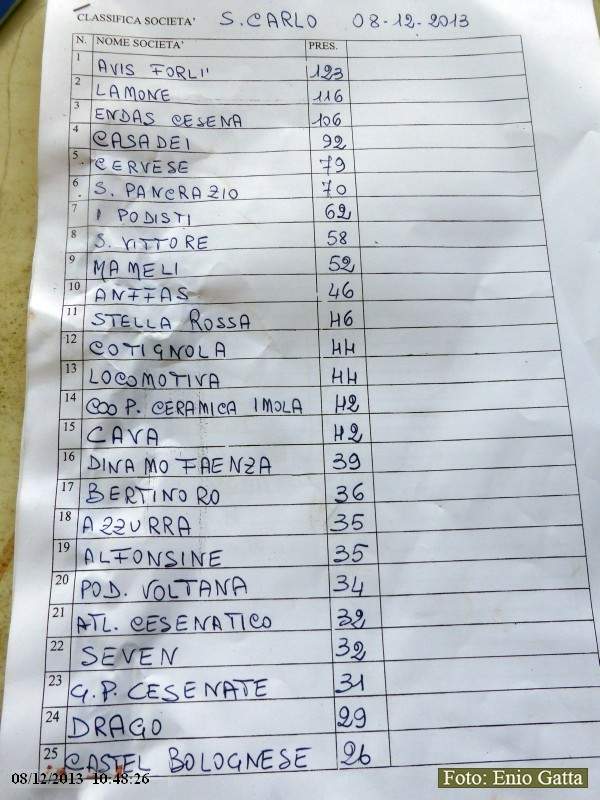 CLASSIFICA SOCIETA' S. CARLO 08-12-2013
N. NOME SOCIETA' PRES.
1 AVIS FORLI' 123
2 LAMONE 116
3 ENDAS CESENA 106
4 CASADEI 92
5 CERVESE 79
6 S. PANCRAZIO 70
7 I PODISTI 62
8 S. VITTORE 58
9 MAMELI 52
10 ANFFAS 46
11 STELLA ROSSA 46
12 COTIGNOLA 44
13 LOCOMOTIVA 44
14 COOP. CERAMICA IMOLA 42
15 CAVA 42
16 DINAMO FAENZA 39
17 BERTINORO 36
18 AZZURRA 35
19 ALFONSINE 35
20 POD. VOLTANA 34
21 ATL. CESENATICO 32
22 SEVEN 32
23 G.P. CESENATE 31
24 DRAGO 29
25 CASTEL BOLOGNESE 26
08/12/2013 10:48:26
Foto: Enio Gatta